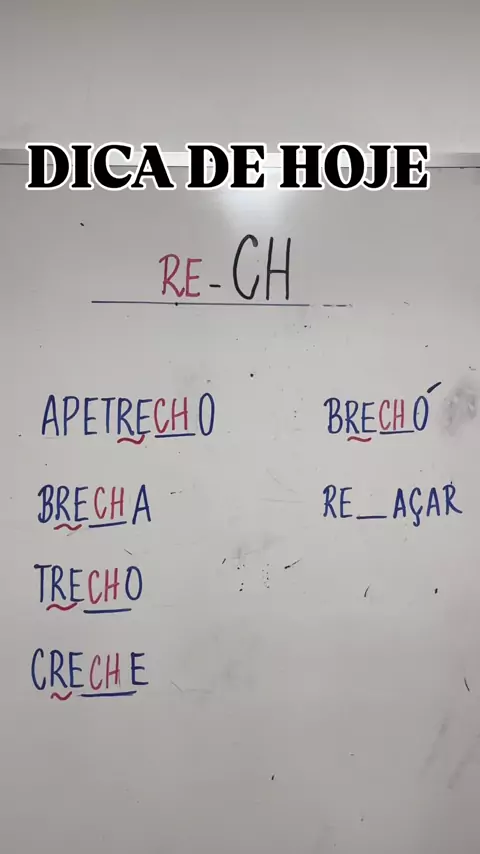 DICA DE HOJE
RE-CH
APETRECHO
BRECHA
TRECHO
CRECHE
BRECHÓ
RE_AÇAR